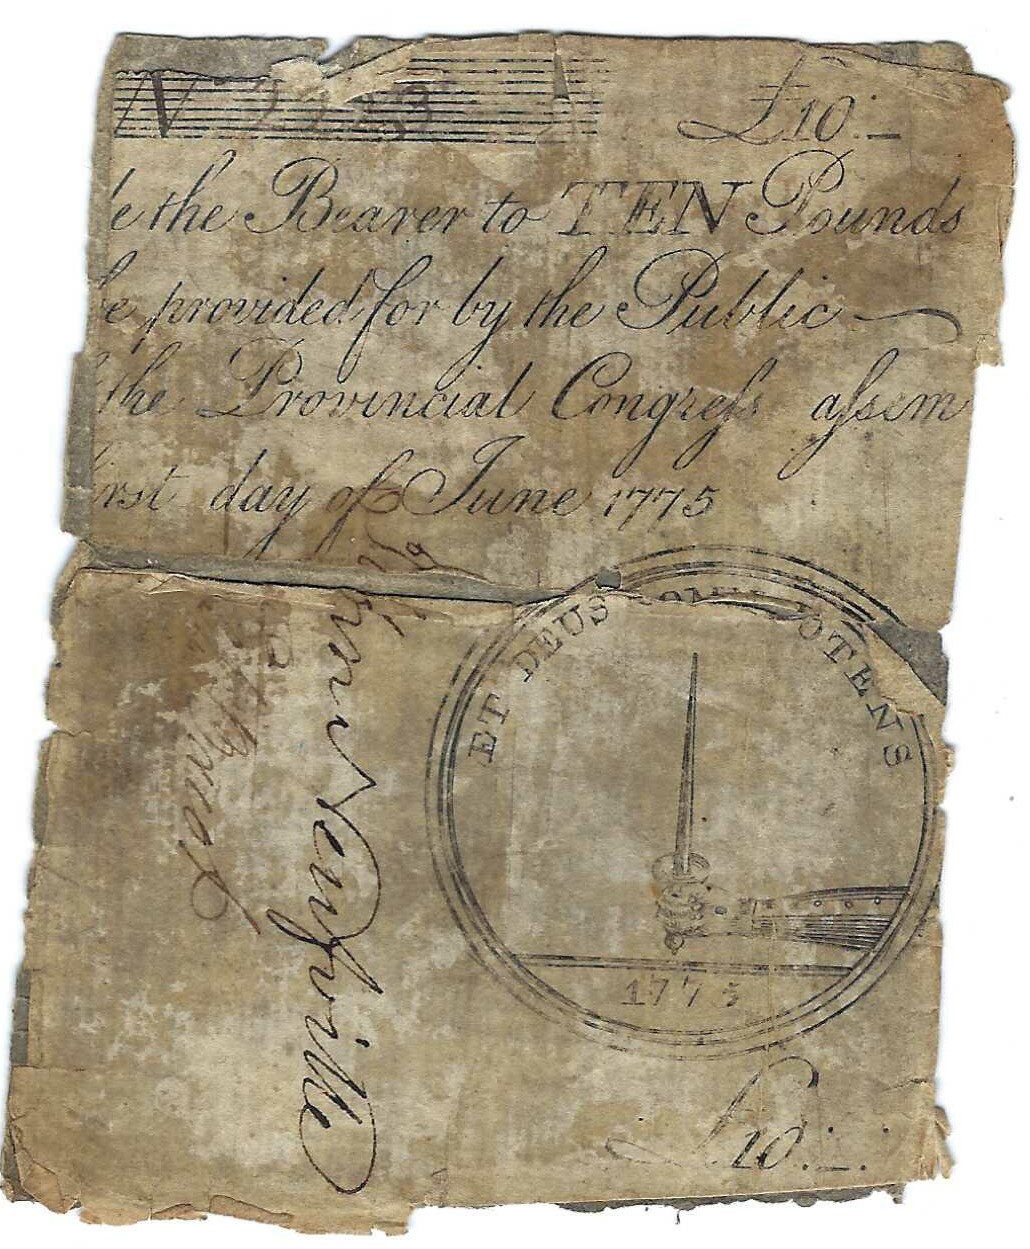 N 2223 £10:_
e the Bearer to TEN Pounds
be provided for by the Public
the Provincial Congreſs aſsem
irst day of June 1775
ET DEUS OMNIPOTENS
1775
£10:_:
Neufville